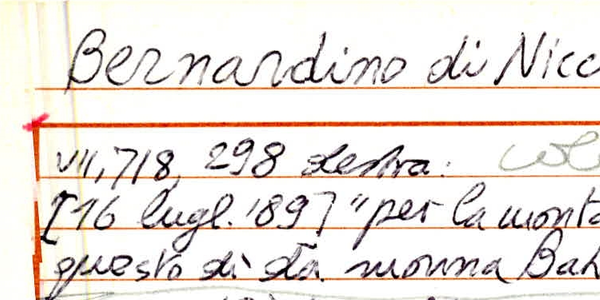 Bernardino di Nicc
VII, 718, 298 destra:
[16 lugl. '89] "per la monta
questo dì dà monna Bah